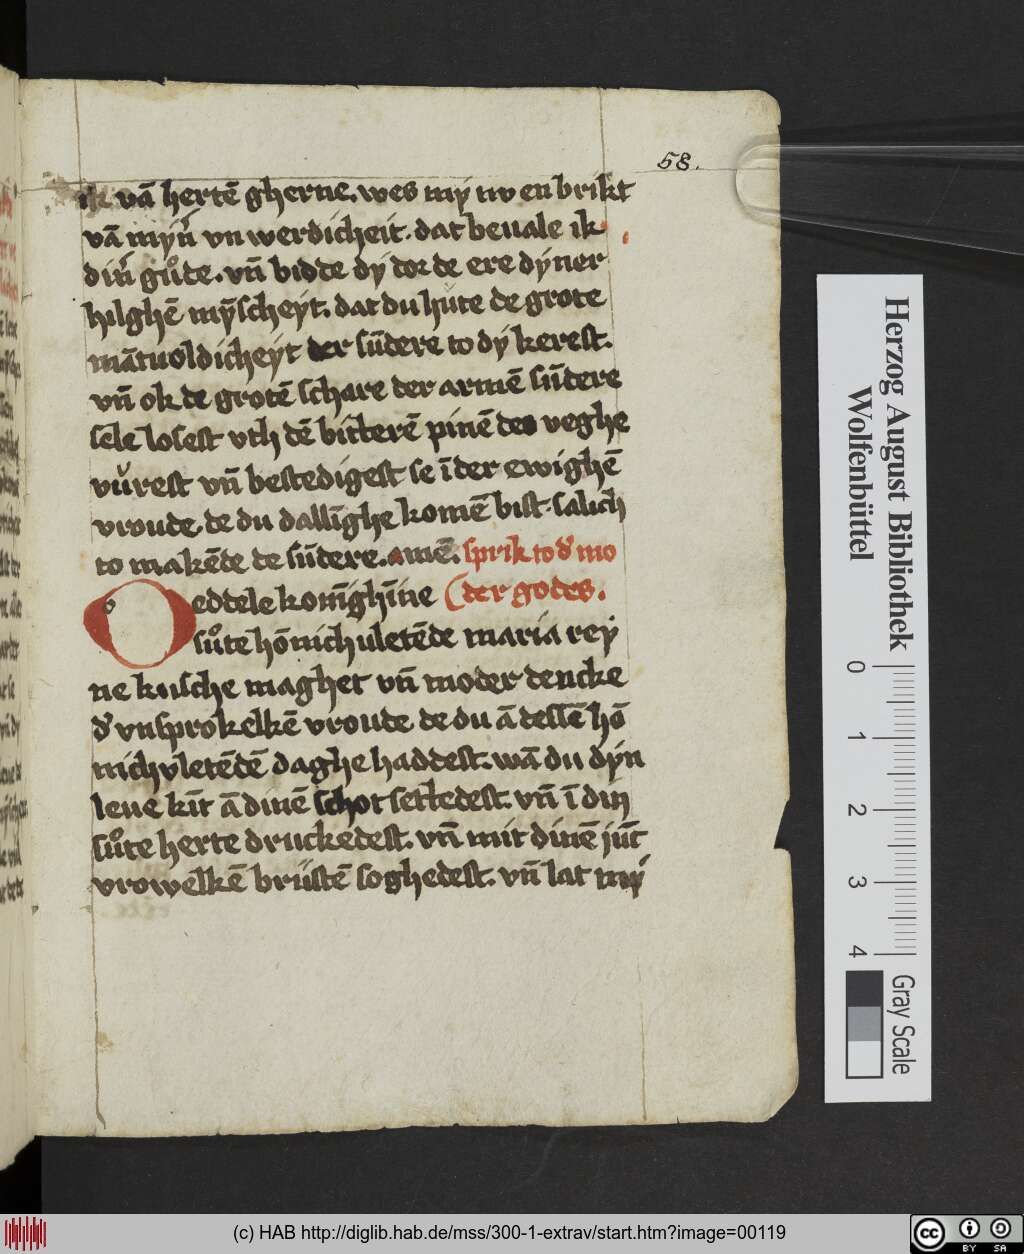 58.
ik vā hertē gherne. wes my nv en brikt
vā myn̄ vn werdicheit. dat beuale ik
din̄ gůde. vn̄ bidde dy dor de ere dyner
hilghē mȳscheyt. dat du hüte de grote
māuoldicheyt der sūdere to dy kerest.
vn̄ ok de grotē schare der armē sūdere
sele losest vth dē bitterē pinē des veghe
vůrest vn̄ bestedigest se ī der ewighē
vroude. de du dallīghe komē bist. salich
to makēde de sūdere. amē. sprik to d' mo
Oeddele konīghīne (der godes.
sůte hōnichuletēde maria rey
ne kusche maghet vn̄ moder dencke
d' vnsprokelkē vroude de du ā dessē hō
nichvletēdē daghe haddest. wā du dyn
leue kīt ā dinē schot settedest. vn̄ ī din
sůte herte druckedest. vn̄ mit dinē jūc
vrowelkē brüstē soghedest. vn̄ lat my
Herzog August Bibliothek
Wolfenbüttel
0 1 2 3 4
Gray Scale
(c) HAB http://diglib.hab.de/mss/300-1-extrav/start.htm?image=00119
cc BY SA